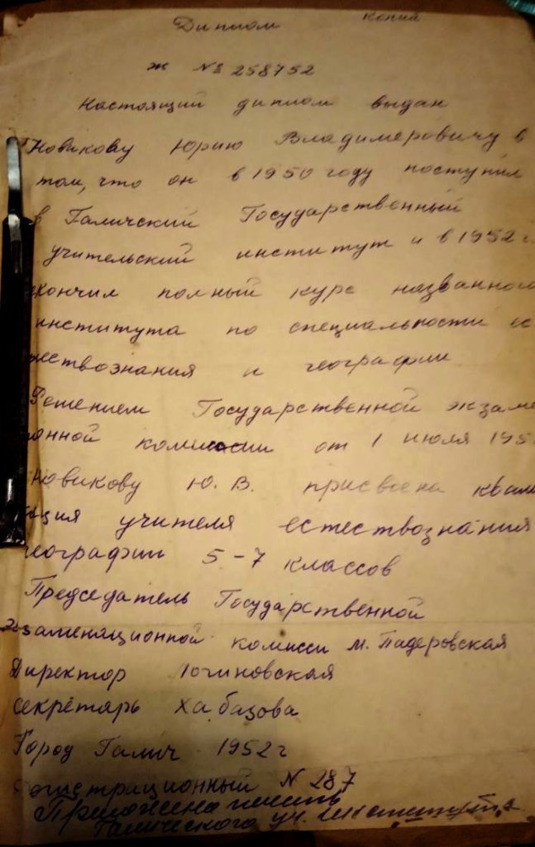 Диплом Копия
Ж № 258752
Настоящий диплом выдан
Новикову Юрию Владимеровичу в
том, что он в 1950 году поступил
в Галичский Государственный
учительский институт и в 1952 г
кончил полный курс названного
института по специальности ес
тествознания и географии
Решением Государственной экзаме
онной комиссии от 1 июля 195
Новикову Ю. В. присвоена квали
ация учителя естествознания
географии 5-7 классов
Председатель Государственной
Экзаменационной комисси М. Падеровская
Директор Логиновская
Секретарь Хабазова
Город Галич 1952 г
егистрационный N 287
Приложена печать
Галического уч. института